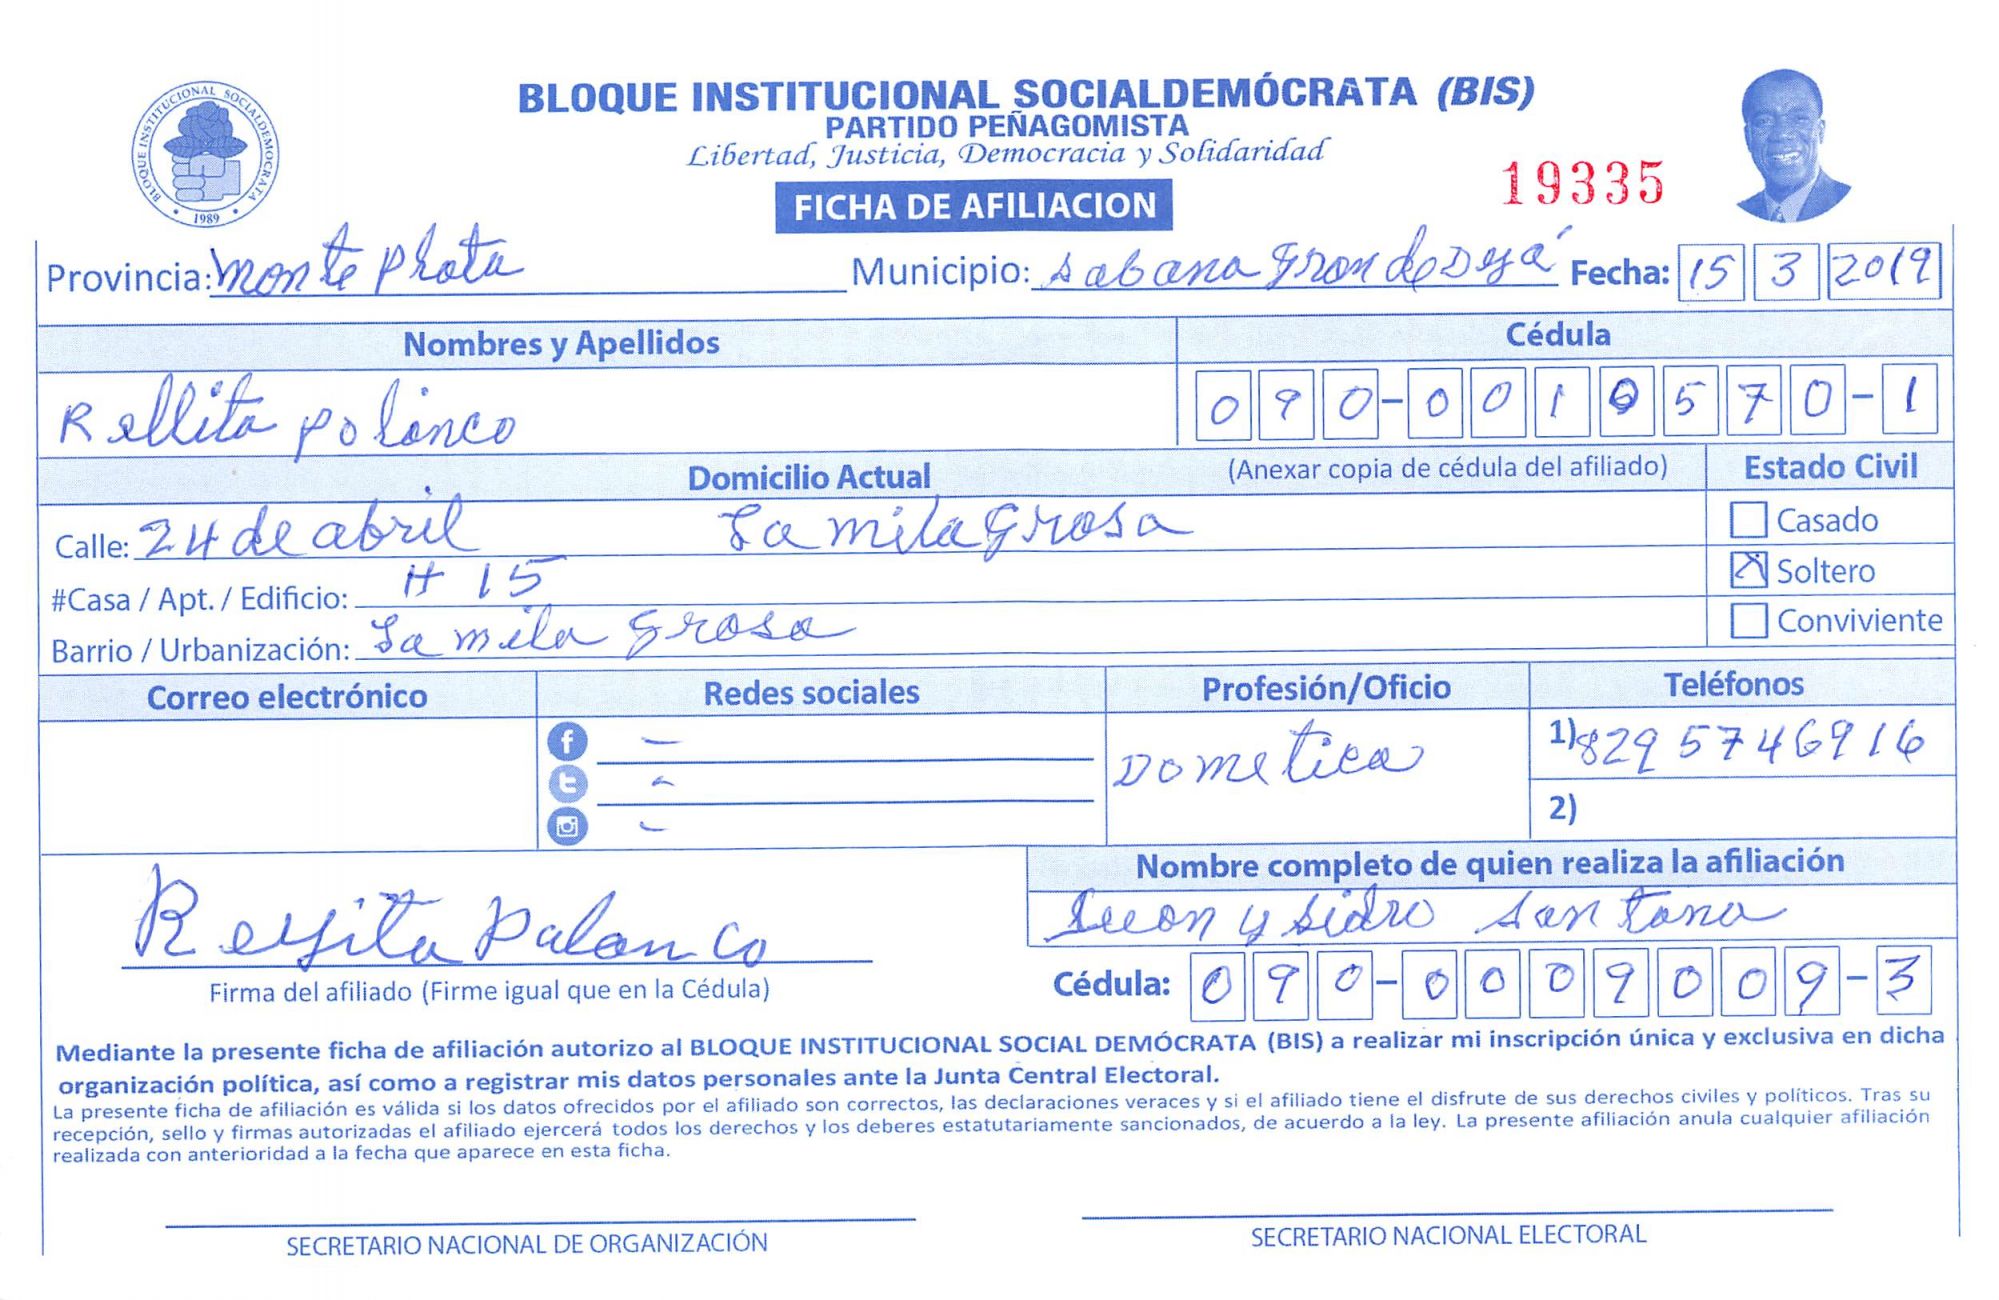 BLOQUE INSTITUCIONAL SOCIALDEMOCRATA
1989
BLOQUE INSTITUCIONAL SOCIALDEMÓCRATA (BIS)
PARTIDO PEÑAGOMISTA
Libertad, Justicia, Democracia y Solidaridad
19335
FICHA DE AFILIACION
Provincia: Monte Plata Municipio: Sabana Grande Fecha: 15 3 2019
Nombres y Apellidos Cédula
Rellita Polanco 090-0010570-1
Domicilio Actual (Anexar copia de cédula del afiliado) Estado Civil
Calle: 24 de abril La mila Grosa Casado
#Casa / Apt. / Edificio: # 15 X Soltero
Barrio / Urbanización: La mila Grosa Conviviente
Correo electrónico Redes sociales Profesión/Oficio Teléfonos
Dometica 1) 829 5746916
2)
Nombre completo de quien realiza la afiliación
Reyita Palanco Santana
Firma del afiliado (Firme igual que en la Cédula) Cédula: 090-0009009-3
Mediante la presente ficha de afiliación autorizo al BLOQUE INSTITUCIONAL SOCIAL DEMÓCRATA (BIS) a realizar mi inscripción única y exclusiva en dicha
organización política, así como a registrar mis datos personales ante la Junta Central Electoral.
La presente ficha de afiliación es válida si los datos ofrecidos por el afiliado son correctos, las declaraciones veraces y si el afiliado tiene el disfrute de sus derechos civiles y políticos. Tras su
recepción, sello y firmas autorizadas el afiliado ejercerá todos los derechos y los deberes estatutariamente sancionados, de acuerdo a la ley. La presente afiliación anula cualquier afiliación
realizada con anterioridad a la fecha que aparece en esta ficha.
SECRETARIO NACIONAL DE ORGANIZACIÓN SECRETARIO NACIONAL ELECTORAL